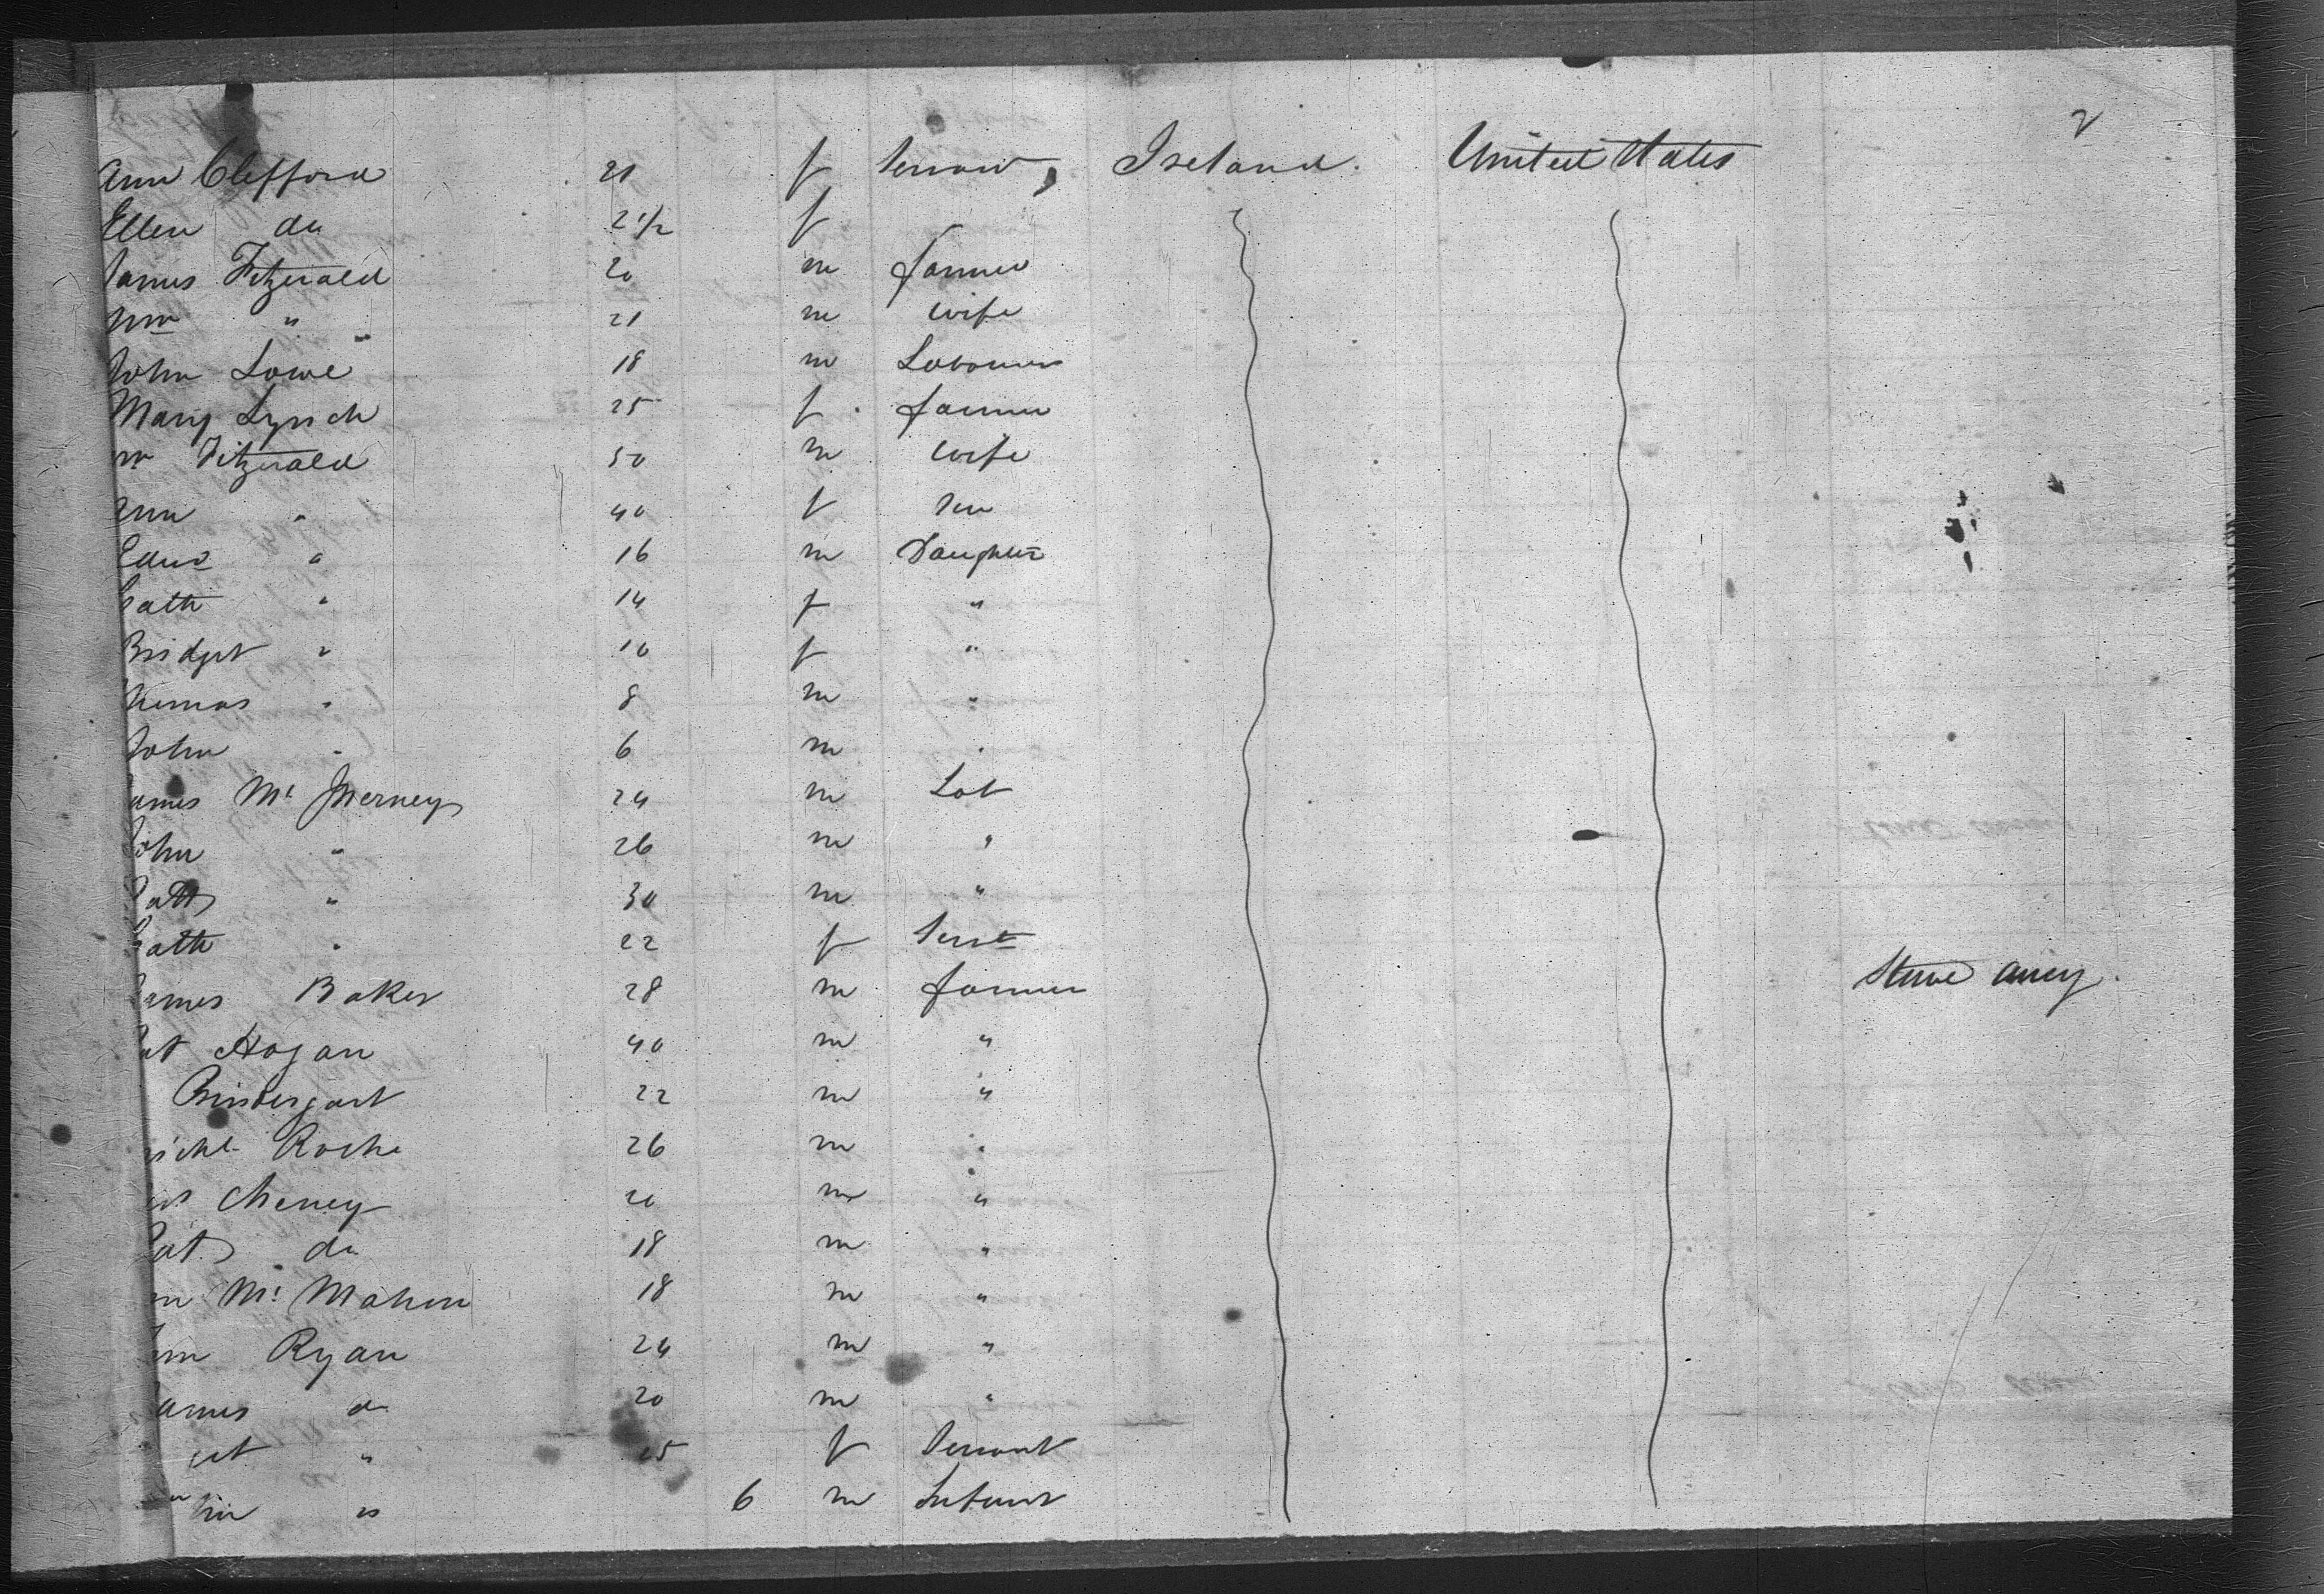 2
Ann Clifford 21 f Servant, Ireland. United States
Ellen do 2 1/2 f
James Fitzerald 20 m farmer
Wm " 21 m wife
John Lowe 18 m Labourer
Mary Lynch 25 f farmer
m Fitzerald 50 m wife
Ann " 40 f son
Edwd " 16 m Daughter
Cath " 14 f "
Bridget " 10 f "
homas " 8 m "
John " 6 m "
ames Mc Inerney 24 m Lab
John " 26 m "
Patt " 30 m "
Cath " 22 f Servt
James Baker 28 m farmer Stowe away
Pat Hogan 40 m "
22 m "
ichl Roche 26 m "
Cheney 20 m "
Pat do 18 m "
m Mc Mahon 18 m "
m Ryan 24 m "
James do 20 m "
get " 25 f Servant
hn " 6 m Infant